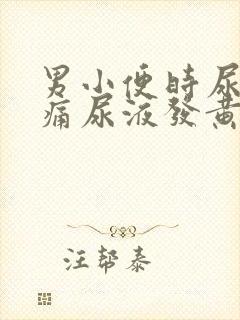 男小便時尿
痛尿液發黃
汪帮泰